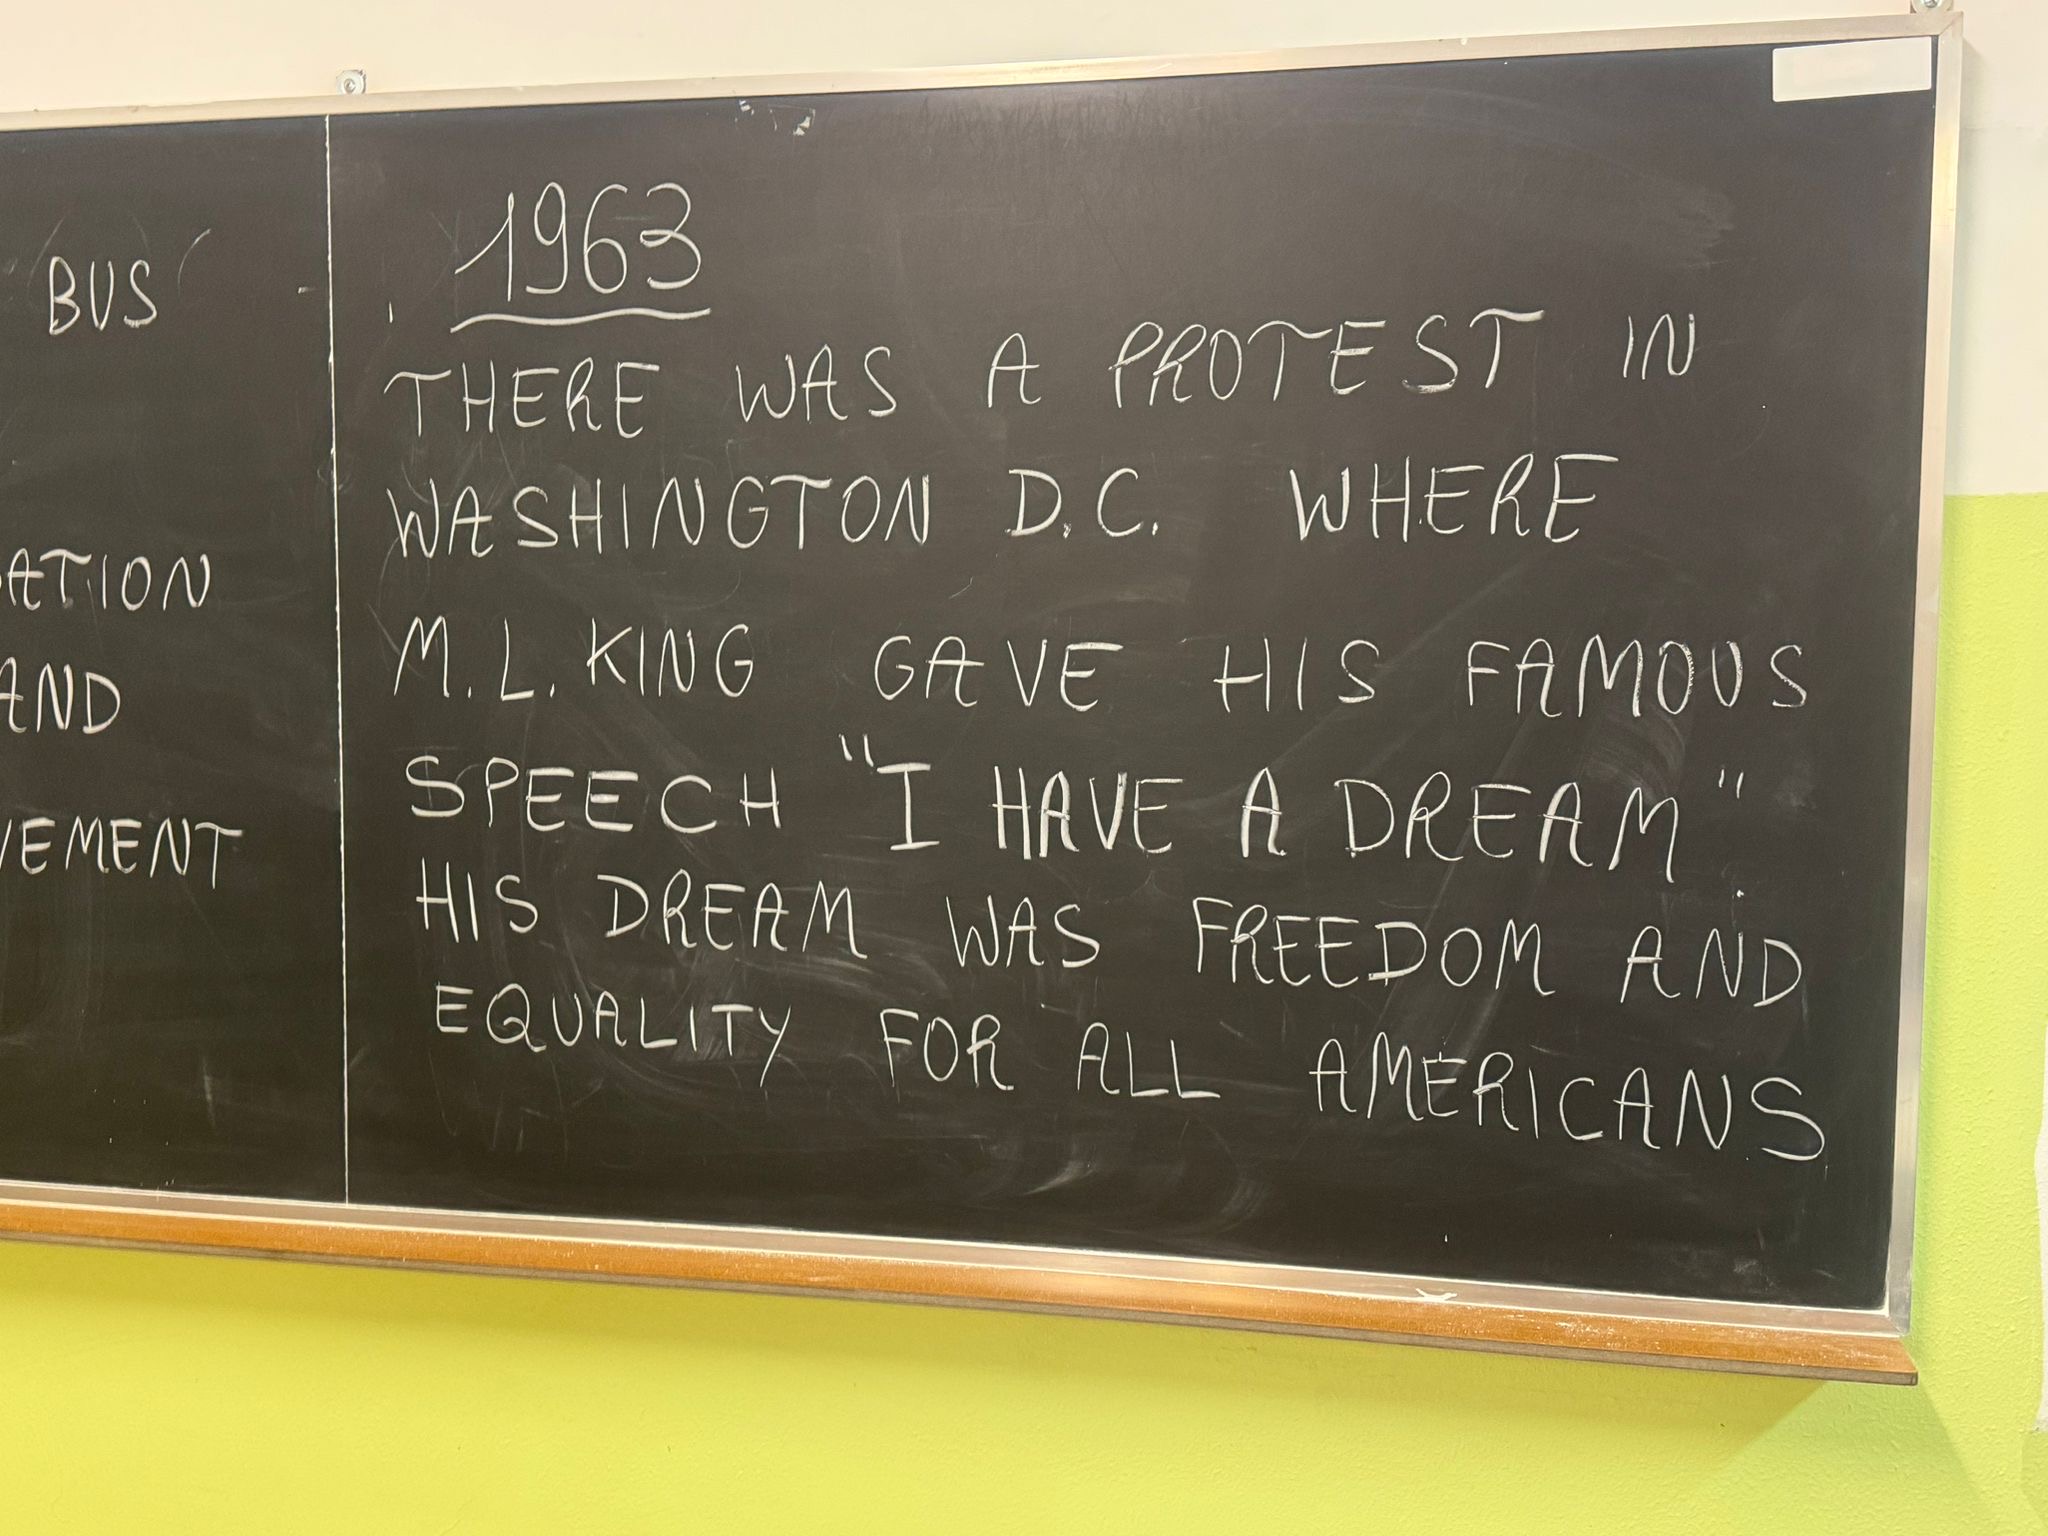 BUS
AND
1963
THERE WAS A PROTEST IN
WASHINGTON D.C. WHERE
M.L. KING GAVE HIS FAMOUS
SPEECH "I HAVE A DREAM".
HIS DREAM WAS FREEDOM AND
EQUALITY FOR ALL AMERICANS